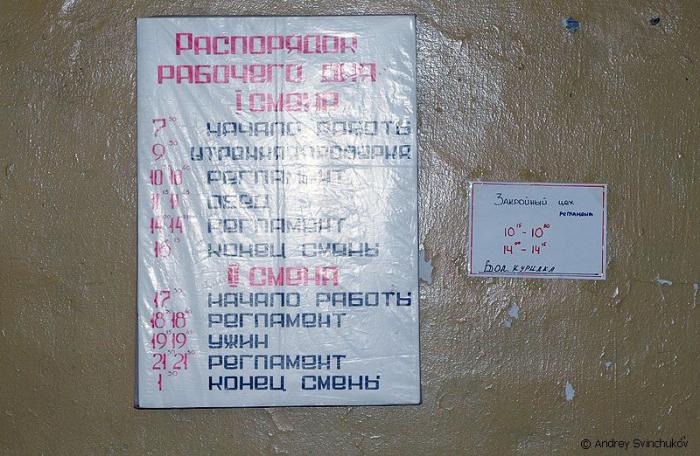 Распорядок
рабочего дня
I смена
7 начало работы
9 утренняя проверка
10 10 регламент
11 11 обед
14 14 регламент
16 конец смены
II смена
17 начало работы
18 18 регламент
19 19 ужин
21 21 регламент
1 конец смены
Закройный цех
регламент
10 15 - 10 30
14 00 - 14 15
Бол. курилка
© Andrey Svinchukov